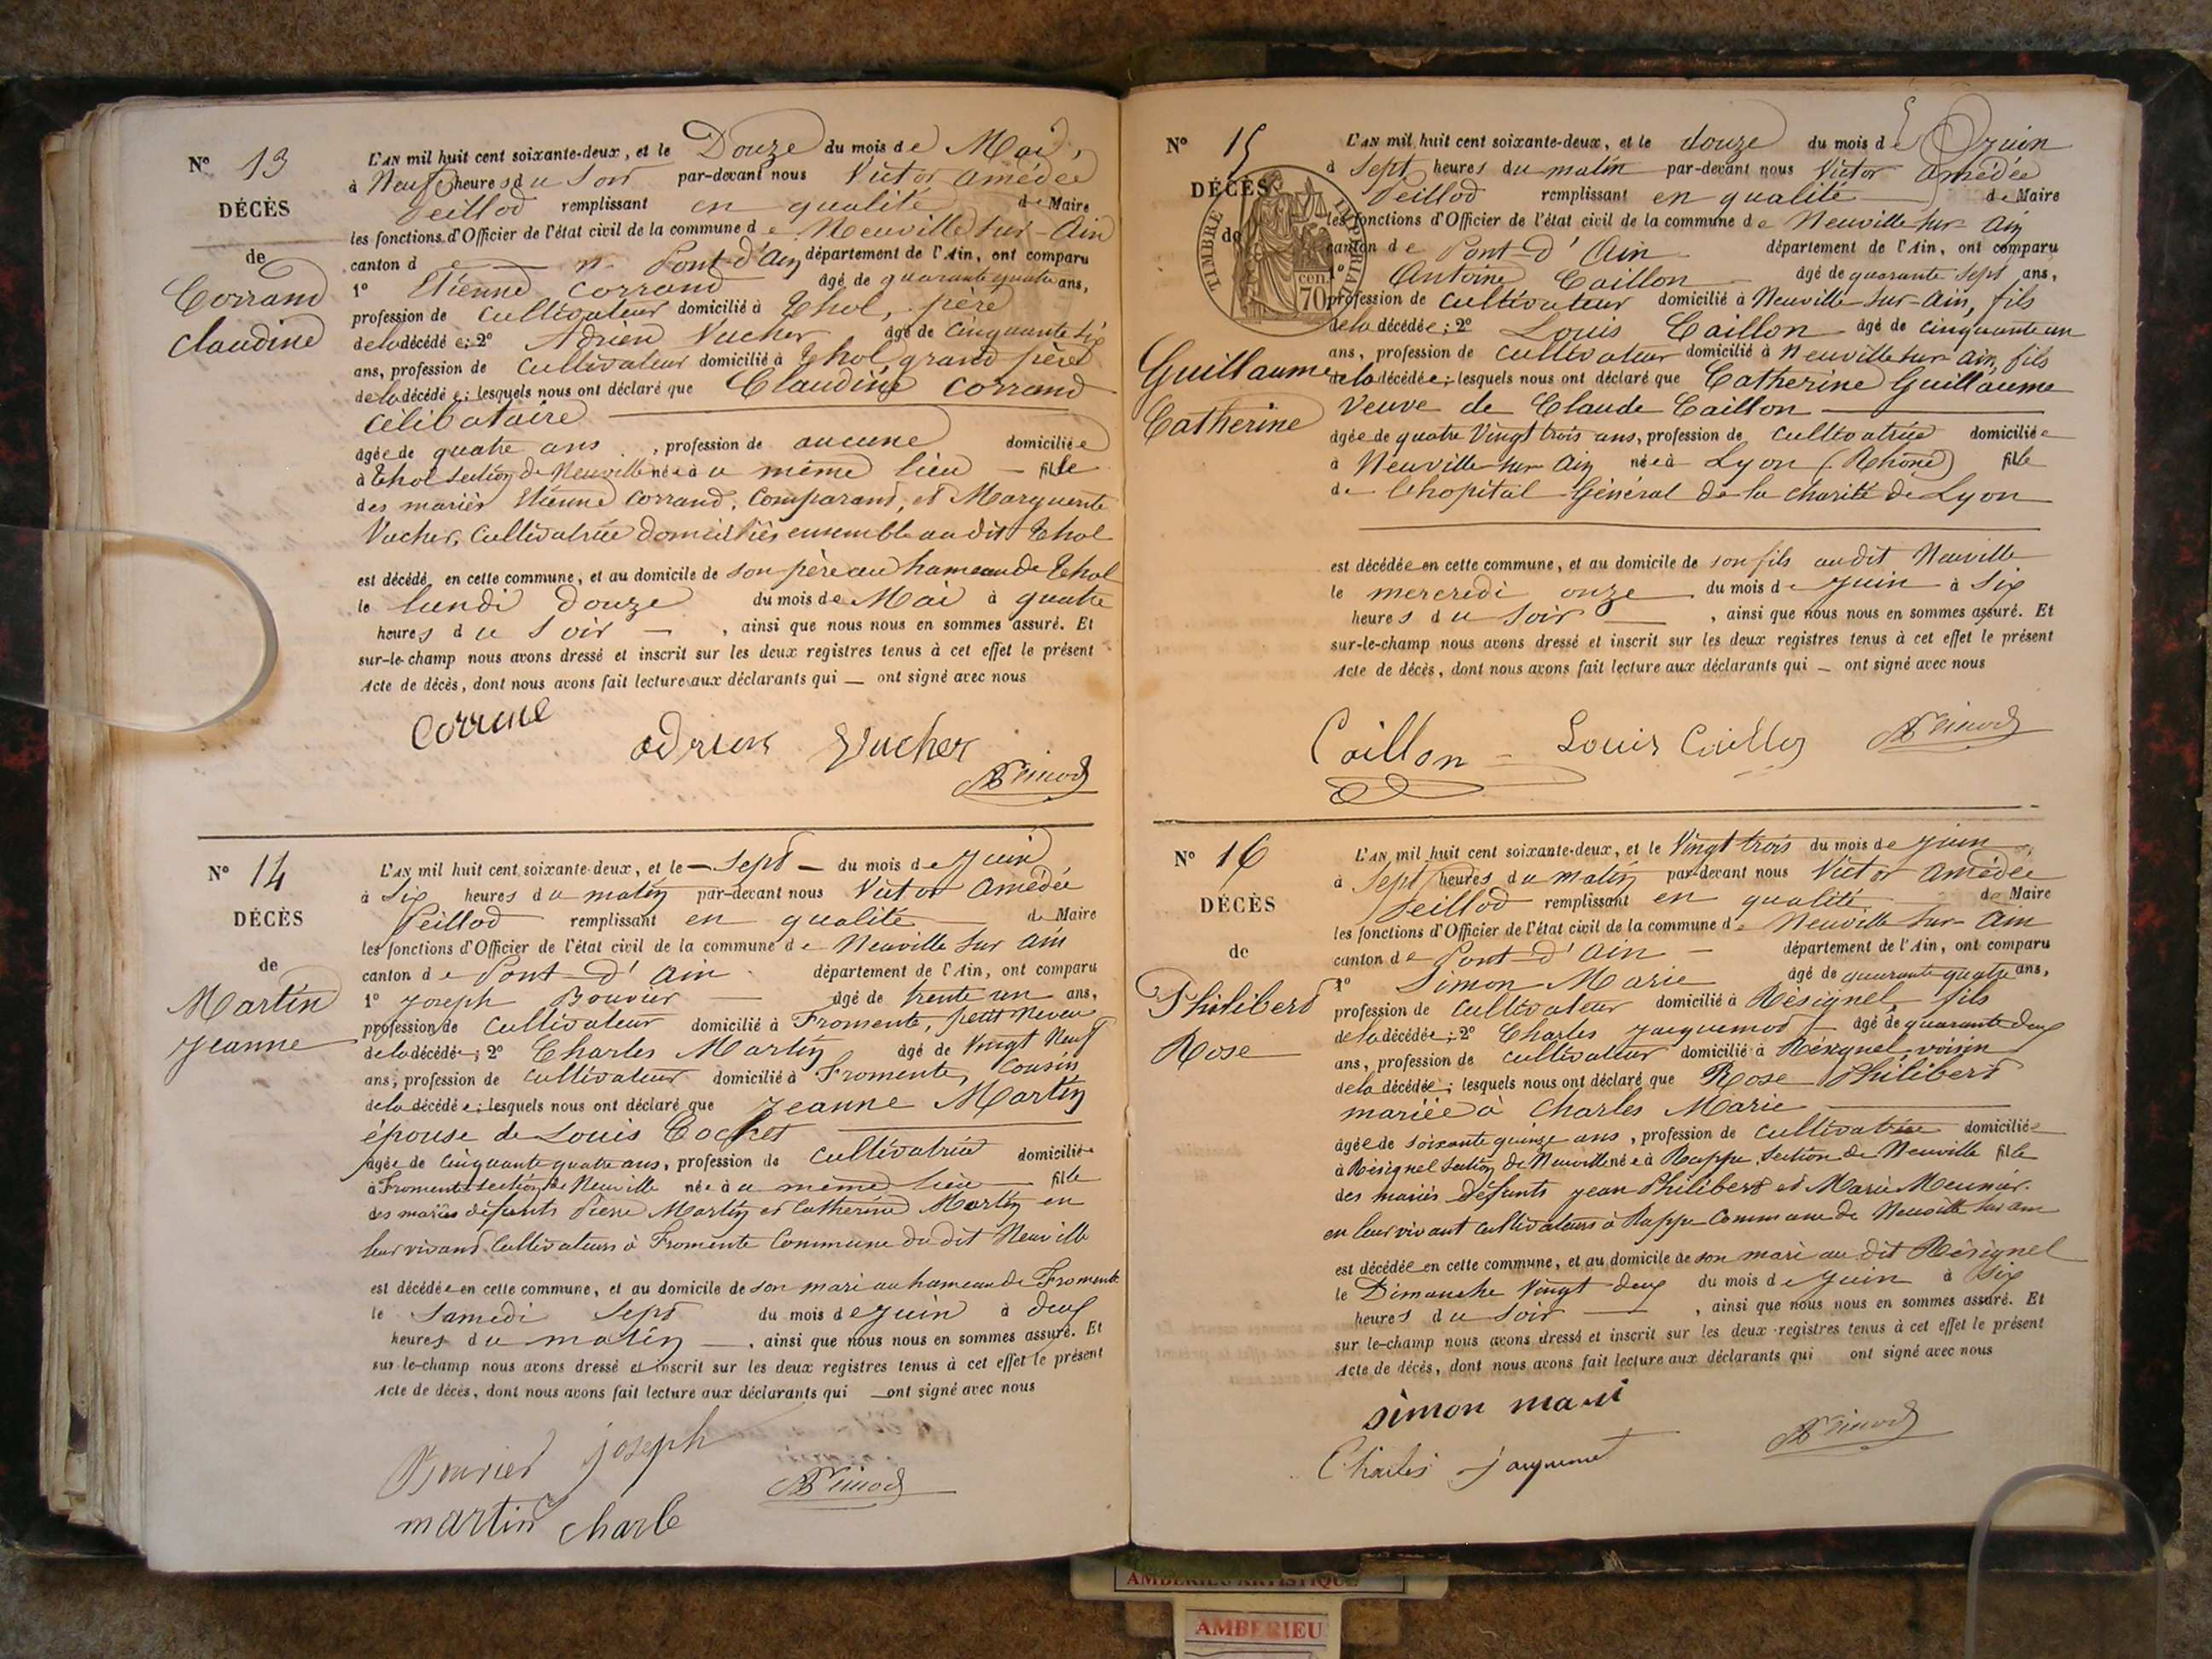 N° 13
DÉCÈS
de
Corrand
Claudine
L'AN mil huit cent soixante-deux, et le Douze du mois de Mai,
à Neuf heures du Soir par-devant nous Victor Amédée
Peillod remplissant en qualité de Maire
les fonctions d'Officier de l'état civil de la commune de Neuville sur-Ain
canton d Pont-d'Ain département de l'Ain, ont comparu
1° Etienne Corrand âgé de quarante quatre ans,
profession de Cultivateur domicilié à Thol, père
de la décédée; 2° Adrien Vucher âgé de Cinquante six
ans, profession de Cultivateur domicilié à Thol, grand père
de la décédée; lesquels nous ont déclaré que Claudine Corrand
Célibataire
âgée de quatre ans, profession de aucune domiciliée
à Thol section de Neuville née à u même lieu fille
des mariés Etienne Corrand, Comparant, et Marguerite
Vucher, Cultivatrice domiciliés ensemble au dit Thol
est décédé en cette commune, et au domicile de son père au hameau de Thol
le lundi douze du mois de Mai à quatre
heures du Soir, ainsi que nous nous en sommes assuré. Et
sur-le-champ nous avons dressé et inscrit sur les deux registres tenus à cet effet le présent
Acte de décès, dont nous avons fait lecture aux déclarants qui — ont signé avec nous
Adrien Vucher
N° 14
DÉCÈS
de
Martin
Jeanne
L'AN mil huit cent soixante-deux, et le — Sept — du mois de Juin
à Six heures du matin par-devant nous Victor Amédée
Peillod remplissant en qualité de Maire
les fonctions d'Officier de l'état civil de la commune de Neuville sur Ain
canton de Pont-d'Ain département de l'Ain, ont comparu
1° Joseph Bouvier âgé de trente un ans,
profession de Cultivateur domicilié à Fromente, petit neveu
de la décédée; 2° Charles Martin âgé de Vingt Neuf
ans, profession de Cultivateur domicilié à Fromente, Cousin
de la décédée; lesquels nous ont déclaré que Jeanne Martin
épouse de Louis Cochet
âgée de Cinquante quatre ans, profession de Cultivatrice domiciliée
à Fromente section de Neuville née à u même lieu fille
des mariés défunts Pierre Martin et Catherine Martin en
leur vivant Cultivateurs à Fromente Commune du dit Neuville
est décédée en cette commune, et au domicile de son mari au hameau de Fromente
le Samedi Sept du mois de Juin à deux
heures du matin, ainsi que nous nous en sommes assuré. Et
sur-le-champ nous avons dressé et inscrit sur les deux registres tenus à cet effet le présent
Acte de décès, dont nous avons fait lecture aux déclarants qui — ont signé avec nous
Bouvier joseph
martin charle
N° 15
DÉCÈS
de
TIMBRE IMPÉRIAL
70 cen.
Guillaume
Catherine
L'AN mil huit cent soixante-deux, et le douze du mois de Juin
à Sept heures du matin par-devant nous Victor Amédée
Peillod remplissant en qualité de Maire
les fonctions d'Officier de l'état civil de la commune de Neuville sur Ain
canton de Pont-d'Ain département de l'Ain, ont comparu
1° Antoine Caillon âgé de quarante Sept ans,
profession de Cultivateur domicilié à Neuville sur-Ain, fils
de la décédée; 2° Louis Caillon âgé de cinquante un
ans, profession de Cultivateur domicilié à Neuville sur Ain, fils
de la décédée; lesquels nous ont déclaré que Catherine Guillaume
Veuve de Claude Caillon
âgée de quatre Vingt trois ans, profession de Cultivatrice domiciliée
à Neuville sur Ain née à Lyon (Rhône) fille
de l'hopital Général de la charité de Lyon
est décédée en cette commune, et au domicile de son fils au dit Neuville
le mercredi onze du mois de Juin à Six
heures du Soir, ainsi que nous nous en sommes assuré. Et
sur-le-champ nous avons dressé et inscrit sur les deux registres tenus à cet effet le présent
Acte de décès, dont nous avons fait lecture aux déclarants qui — ont signé avec nous
Caillon Louis Caillon
N° 16
DÉCÈS
de
Philibert
Rose
L'AN mil huit cent soixante-deux, et le Vingt trois du mois de Juin
à Sept heures du matin par-devant nous Victor Amédée
Peillod remplissant en qualité de Maire
les fonctions d'Officier de l'état civil de la commune de Neuville sur-Ain
canton de Pont-d'Ain département de l'Ain, ont comparu
1° Simon Marie âgé de quarante quatre ans,
profession de Cultivateur domicilié à Résignel, fils
de la décédée; 2° Charles Jacquemod âgé de quarante deux
ans, profession de Cultivateur domicilié à Résignel, voisin
de la décédée; lesquels nous ont déclaré que Rose Philibert
mariée à Charles Marie
âgée de soixante quinze ans, profession de Cultivatrice domiciliée
à Résignel section de Neuville née à Rappe section de Neuville fille
des mariés défunts Jean Philibert et Marie Meunier
en leur vivant cultivateurs à Rappe Commune de Neuville sur Ain
est décédée en cette commune, et au domicile de son mari au dit Résignel
le Dimanche Vingt deux du mois de Juin à Six
heures du Soir, ainsi que nous nous en sommes assuré. Et
sur-le-champ nous avons dressé et inscrit sur les deux registres tenus à cet effet le présent
Acte de décès, dont nous avons fait lecture aux déclarants qui ont signé avec nous
simon mari
Charles
AMBERIEU ARTISTIQUE
AMBERIEU